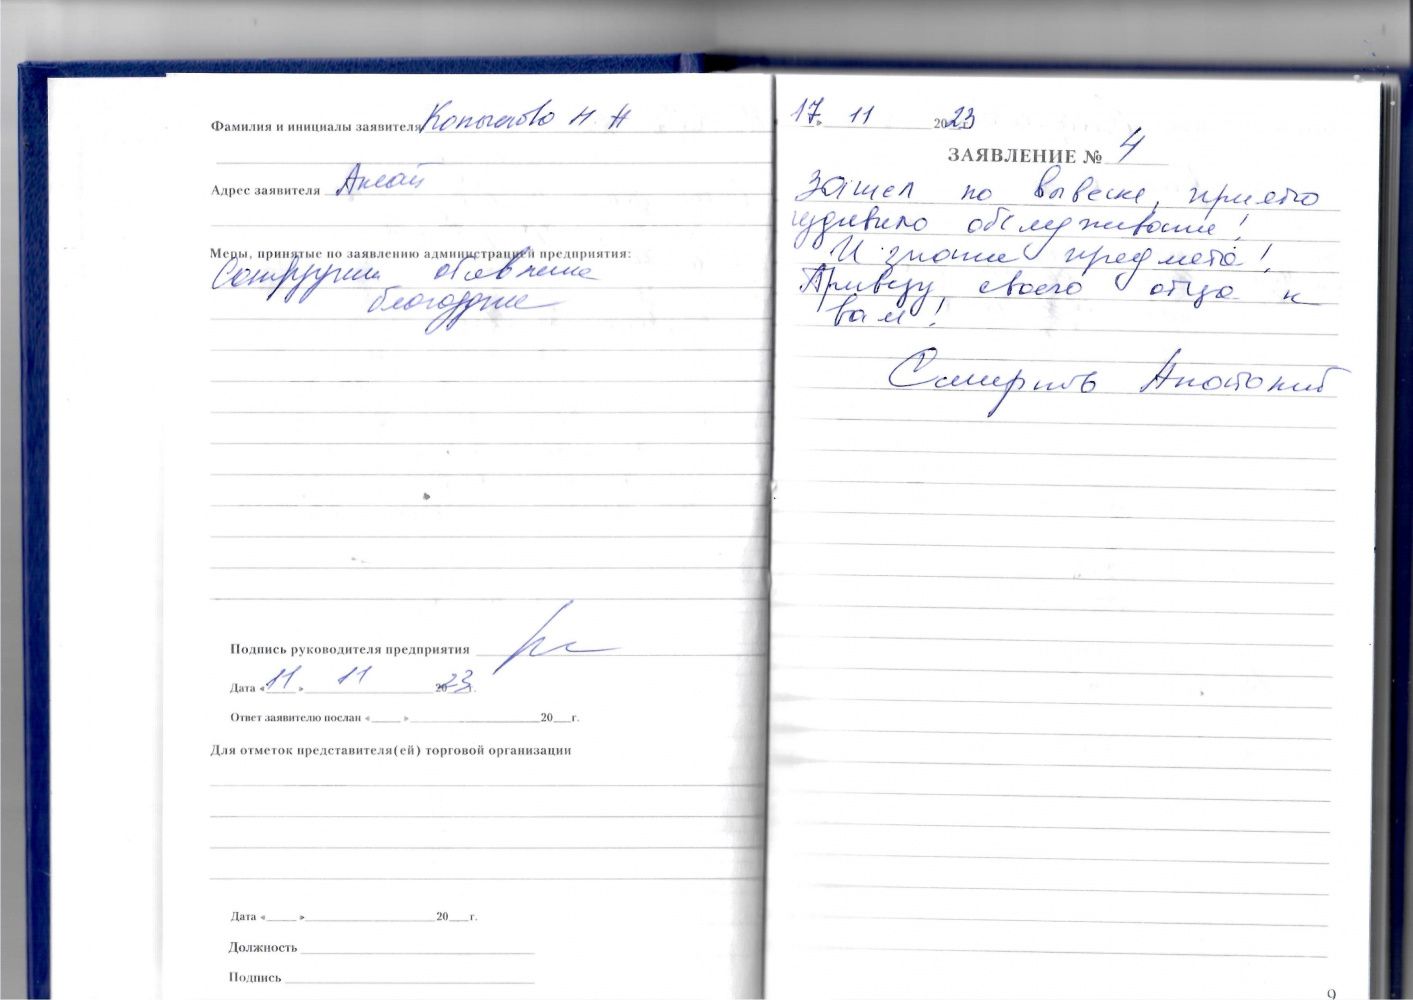 Фамилия и инициалы заявителя Копылова Н. Н
Адрес заявителя Аксай
Меры, принятые по заявлению администрацией предприятия:
Сотруднику объявлена
благодарность
Подпись руководителя предприятия
Дата «11» 11 2023г.
Ответ заявителю послан «____» ____ 20__г.
Для отметок представителя(ей) торговой организации
Дата «____» ____ 20__г.
Должность
Подпись
17 11 2023
ЗАЯВЛЕНИЕ № 4
Зашел по вывеске, приятно
удивило обслуживание!
И знание предмета!
Привезу своего отца к
вам!
Смирнов Анатолий
9